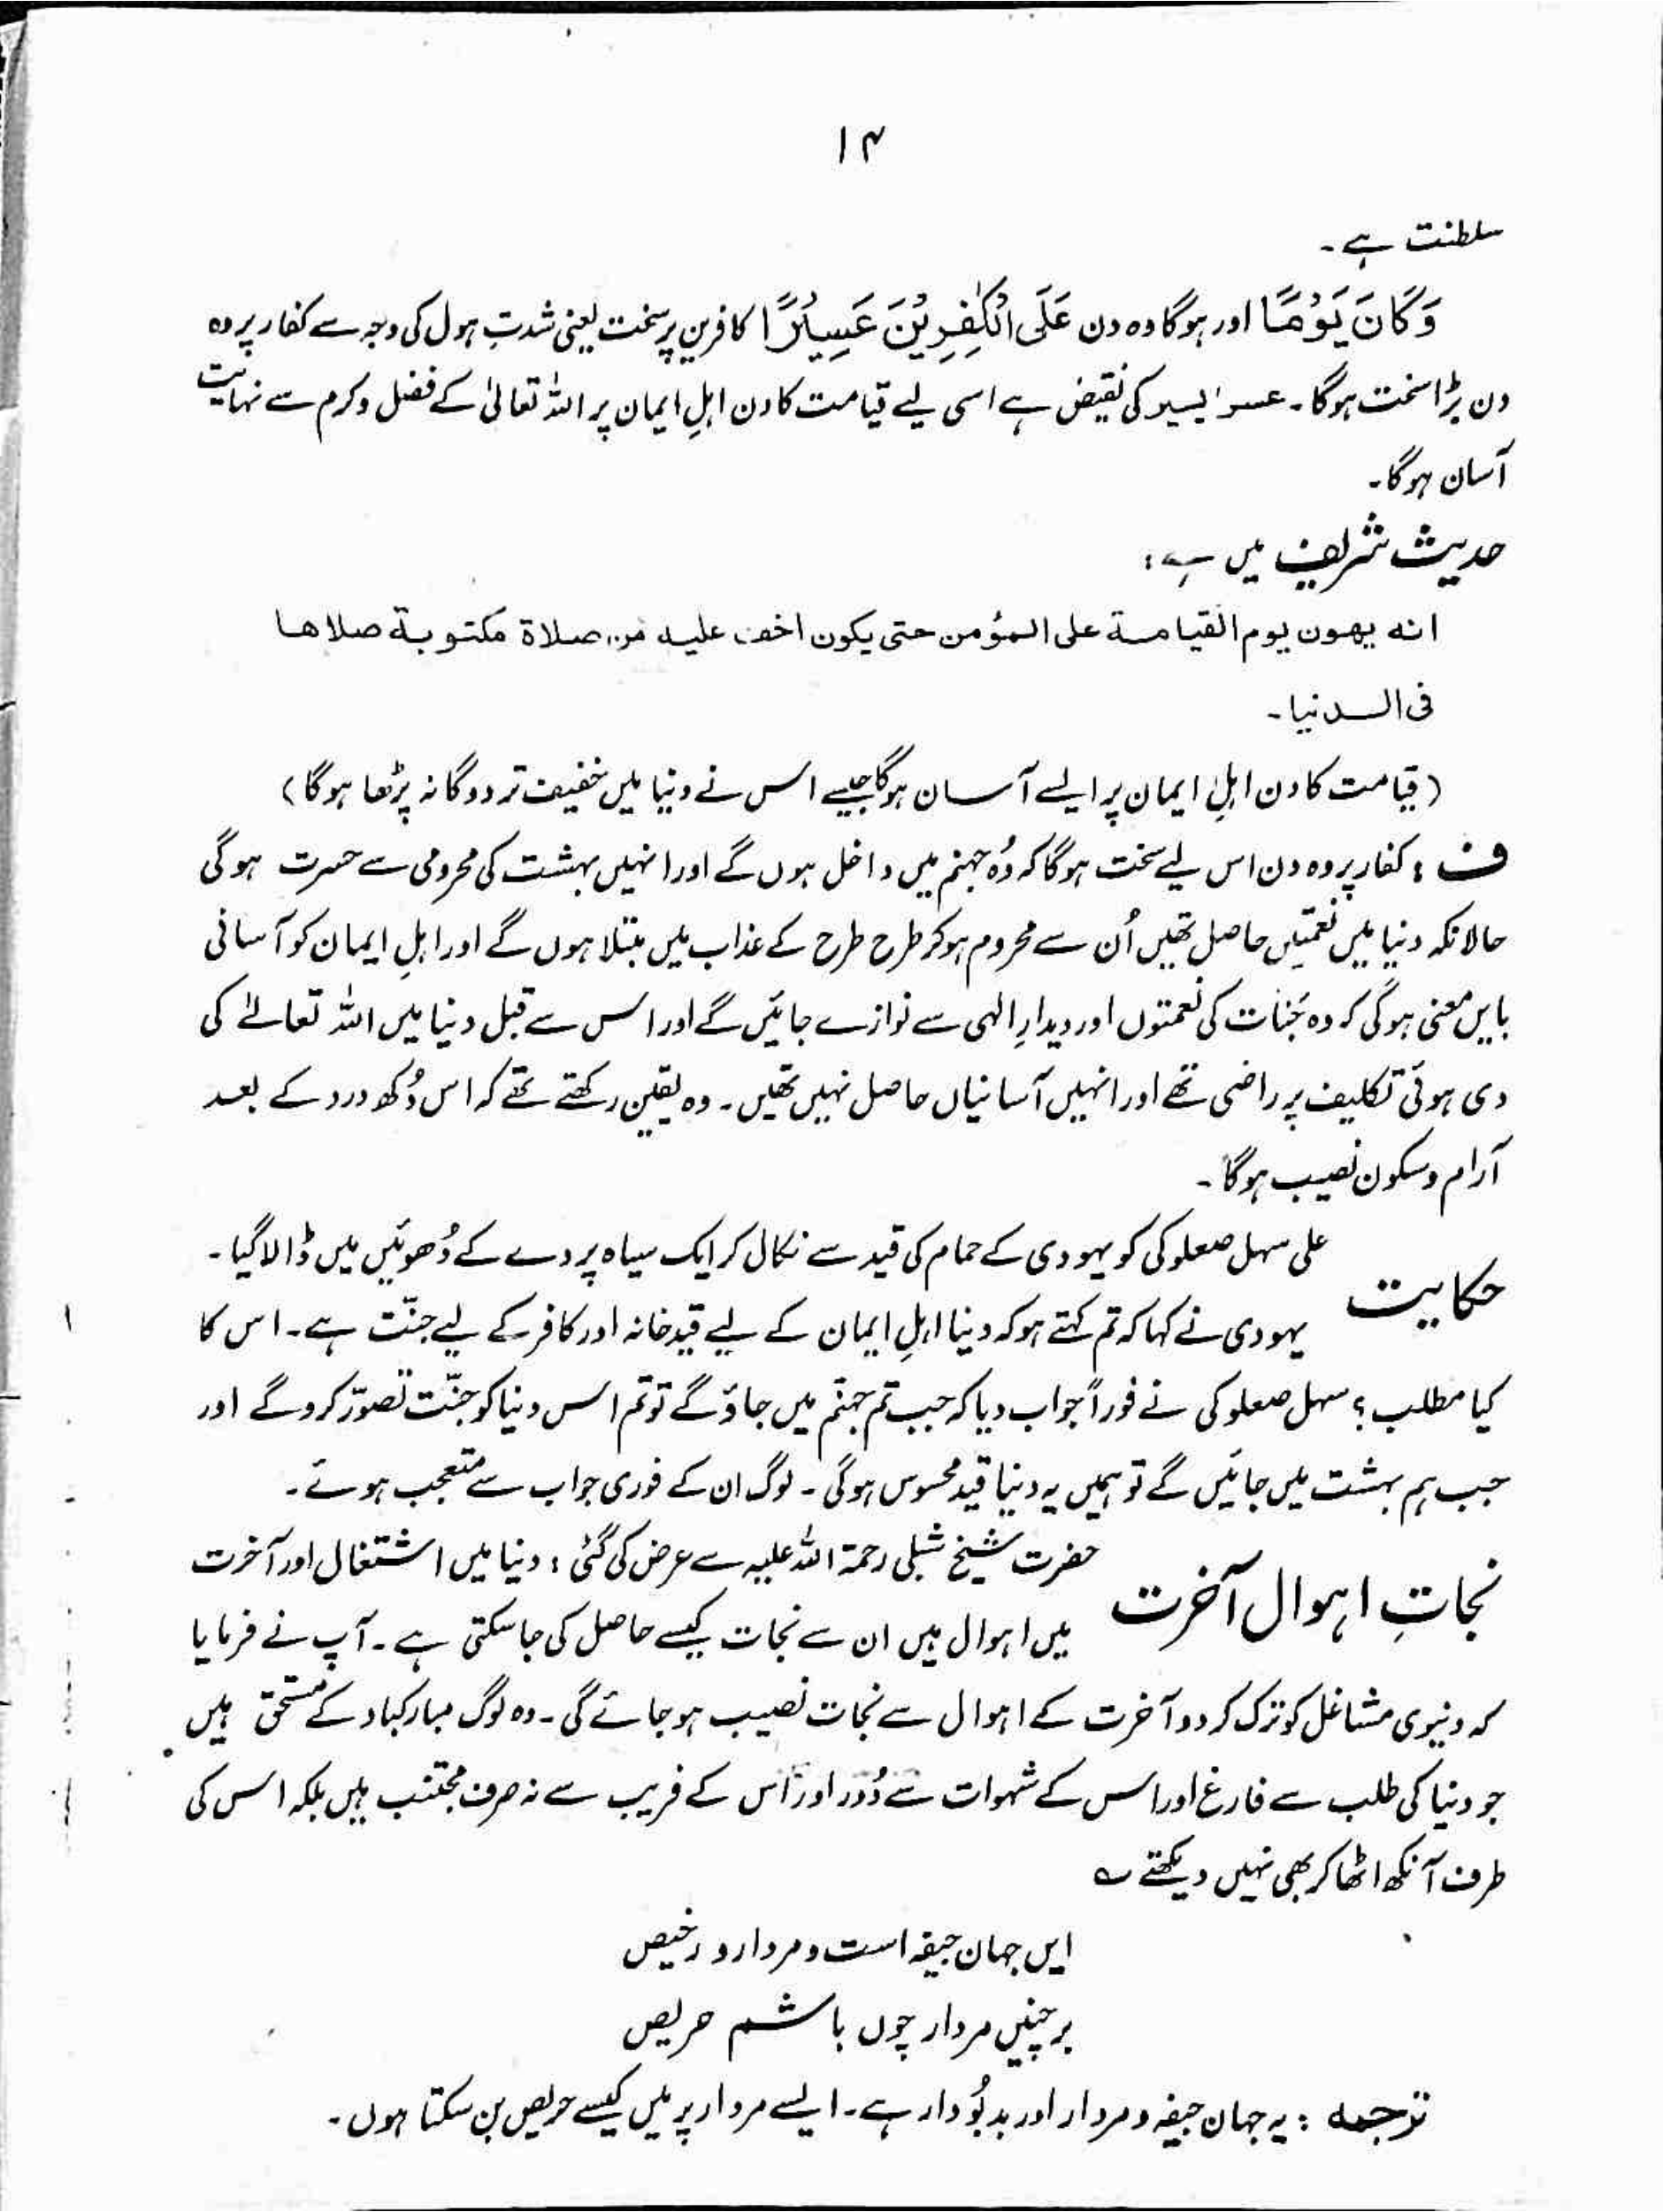 ۱۴
سلطنت ہے۔
وَكَانَ يَوْمًا اور ہوگا وہ دن عَلَى الْكٰفِرِيْنَ عَسِيْرًا کافرین پر سخت یعنی شدتِ ہول کی وجہ سے کفار پر وہ
دن بڑا سخت ہوگا۔ عسر، یسیر کی نقیض ہے اسی لیے قیامت کا دن اہلِ ایمان پر اللہ تعالیٰ کے فضل و کرم سے نہایت
آسان ہوگا۔
حدیث شریف میں ہے:
انه يهون يوم القيامة على المؤمن حتى يكون اخف عليه من صلاة مكتوبة صلاها
فى الدنيا۔
(قیامت کا دن اہلِ ایمان پر ایسے آسان ہوگا جیسے اس نے دنیا میں خفیف تر دوگانہ پڑھا ہوگا)
ف : کفار پر وہ دن اس لیے سخت ہوگا کہ وُہ جہنم میں داخل ہوں گے اور انہیں بہشت کی محرومی سے حسرت ہوگی
حالانکہ دنیا میں نعمتیں حاصل تھیں اُن سے محروم ہوکر طرح طرح کے عذاب میں مبتلا ہوں گے اور اہلِ ایمان کو آسانی
بایں معنی ہوگی کہ وہ جنات کی نعمتوں اور دیدارِ الٰہی سے نوازے جائیں گے اور اس سے قبل دنیا میں اللہ تعالےٰ کی
دی ہوئی تکلیف پر راضی تھے اور انہیں آسانیاں حاصل نہیں تھیں۔ وہ یقین رکھتے تھے کہ اس دُکھ درد کے بعد
آرام و سکون نصیب ہوگا۔
علی سہل صعلوکی کو یہودی کے حمام کی قید سے نکال کر ایک سیاہ پردے کے دُھوئیں میں ڈالا گیا۔
حکایت
یہودی نے کہا کہ تم کہتے ہو کہ دنیا اہلِ ایمان کے لیے قیدخانہ اور کافر کے لیے جنّت ہے۔ اس کا
کیا مطلب؟ سہل صعلوکی نے فوراً جواب دیا کہ جب تم جہنّم میں جاؤ گے تو تم اس دنیا کو جنّت تصوّر کرو گے اور
جب ہم بہشت میں جائیں گے تو ہمیں یہ دنیا قید محسوس ہوگی۔ لوگ ان کے فوری جواب سے متعجب ہوئے۔
حضرت شیخ شبلی رحمۃ اللہ علیہ سے عرض کی گئی : دنیا میں اشتغال اور آخرت
نجاتِ اہوال آخرت
میں اہوال ہیں ان سے نجات کیسے حاصل کی جاسکتی ہے۔ آپ نے فرمایا
کہ دنیوی مشاغل کو ترک کر دو آخرت کے اہوال سے نجات نصیب ہوجائے گی۔ وہ لوگ مبارکباد کے مستحق ہیں
جو دنیا کی طلب سے فارغ اور اس کے شہوات سے دُور اور اس کے فریب سے نہ صرف مجتنب ہیں بلکہ اس کی
طرف آنکھ اٹھا کر بھی نہیں دیکھتے ؎
ایں جہان جیفہ است و مردار و رخیص
بر چنیں مردار چوں باشم حریص
ترجمہ : یہ جہان جیفہ و مردار اور بدبُودار ہے۔ ایسے مردار پر میں کیسے حریص بن سکتا ہوں۔